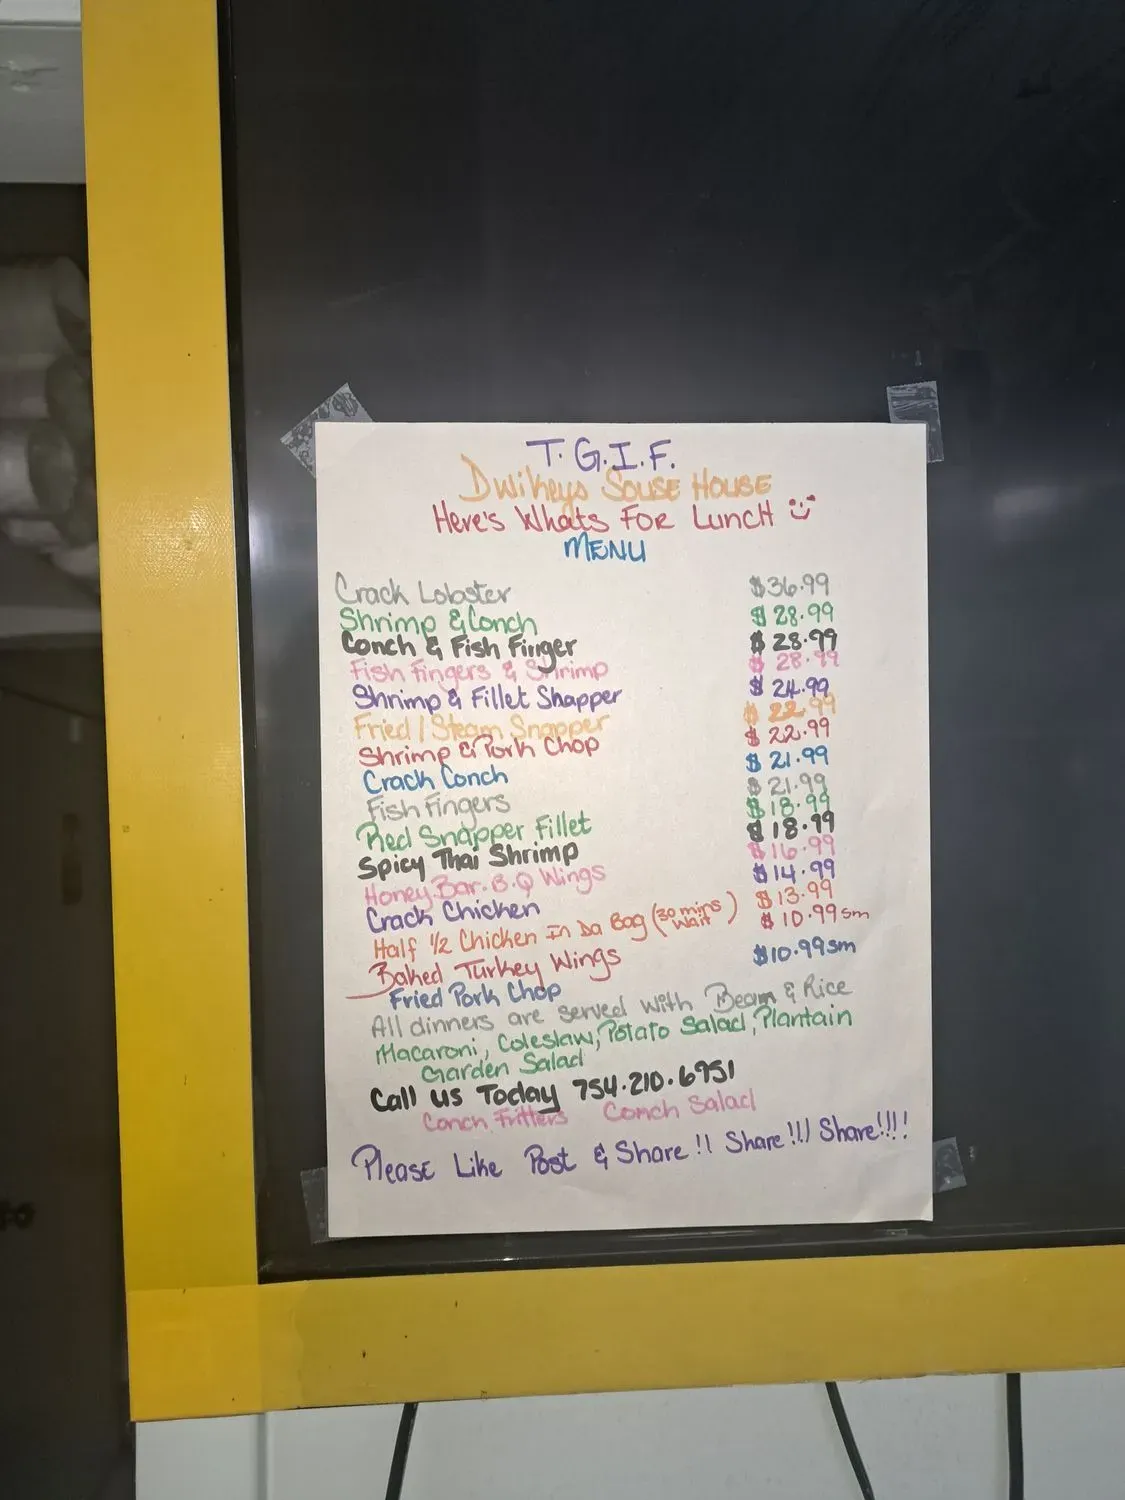 T.G.I.F.
Dwikeys Souse House
Here's Whats For Lunch
MENU
Crack Lobster $36.99
Shrimp & Conch $28.99
Conch & Fish Finger $28.99
Fish Fingers & Shrimp $28.99
Shrimp & Fillet Snapper $24.99
Fried / Steam Snapper $22.99
Shrimp & Pork Chop $22.99
Crack Conch $21.99
Fish Fingers $21.99
Red Snapper Fillet $18.99
Spicy Thai Shrimp $18.99
Honey Bar.B.Q Wings $16.99
Crack Chicken $14.99
Half 1/2 Chicken In Da Bag (30 mins wait) $13.99
Baked Turkey Wings $10.99 sm
Fried Pork Chop $10.99 sm
All dinners are served with Bean & Rice
Macaroni, Coleslaw, Potato Salad, Plantain
Garden Salad
Call us Today 754.210.6951
Conch Fritters Conch Salad
Please Like Post & Share!! Share!!! Share!!!!